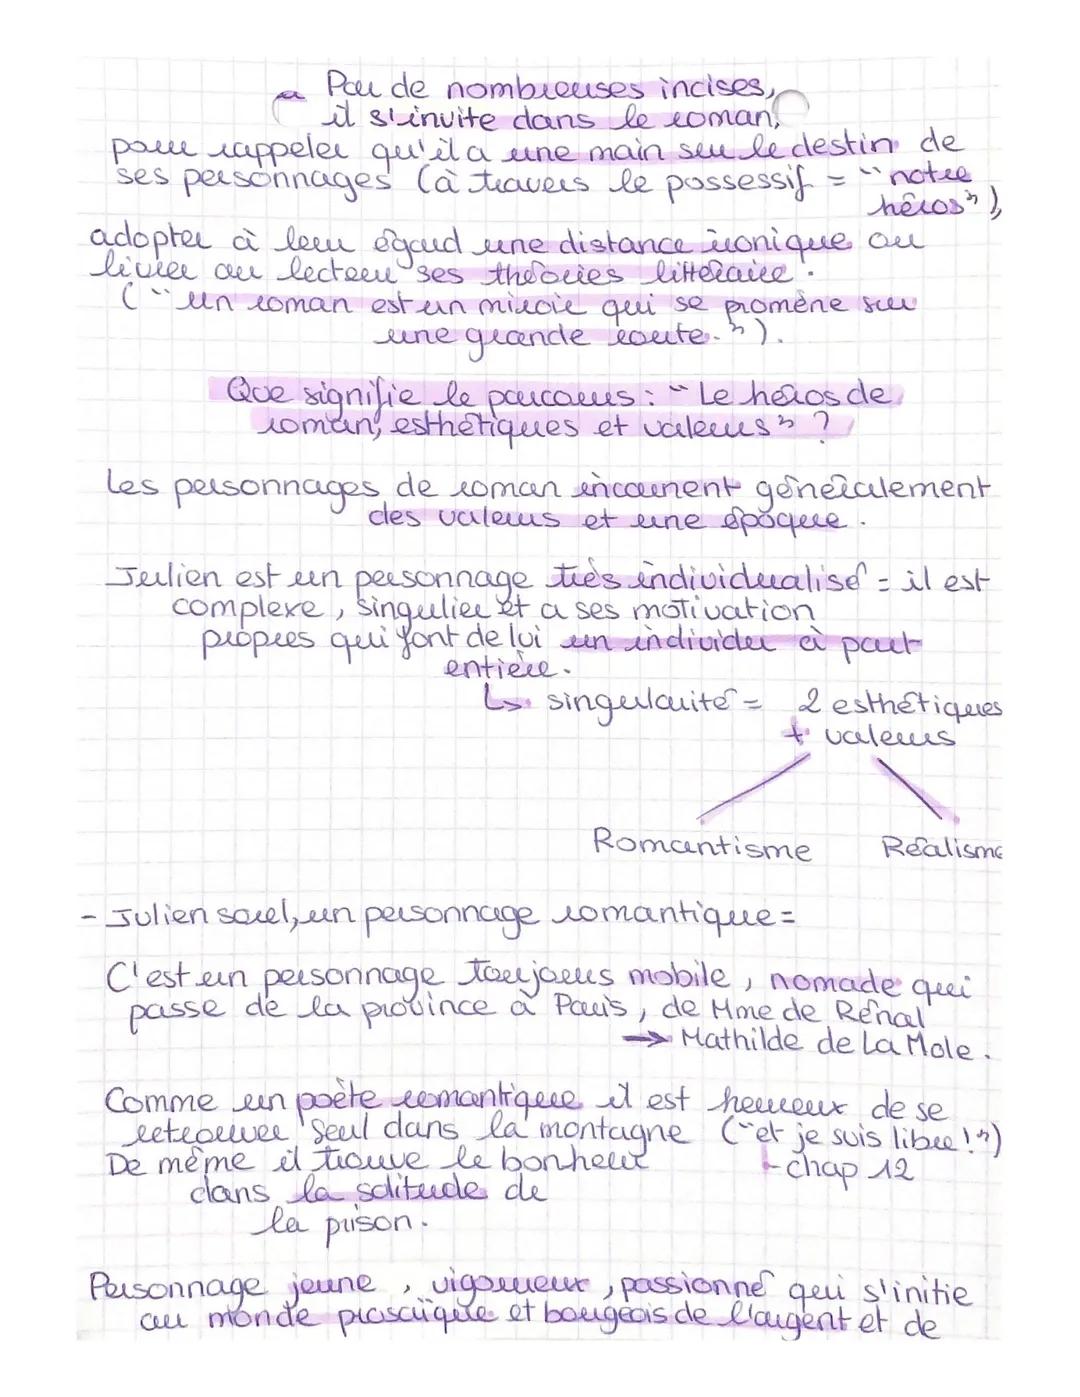 Par de nombreuses incises,
il s'invite dans le roman,
pour rappeler qu'il a une main sur le destin de
ses personnages (à travers le possessif = "notre
héros"),
adopter à leur égard une distance ironique ou
livrer au lecteur ses théories littéraire.
("un roman est un miroir qui se promène sur
une grande route.").
Que signifie le parcours : "Le héros de
roman, esthétiques et valeurs" ?
Les personnages de roman incarnent généralement
des valeurs et une époque.
Julien est un personnage très individualisé = il est
complexe, singulier et a ses motivation
propres qui font de lui un individu à part
entière.
↳ singularité = 2 esthétiques
+ valeurs
Romantisme Réalisme
- Julien sorel, un personnage romantique =
C'est un personnage toujours mobile, nomade qui
passe de la province à Paris, de Mme de Rênal
→ Mathilde de La Mole.
Comme un poète romantique il est heureux de se
retrouver seul dans la montagne ("et je suis libre !")
De même il trouve le bonheur - chap 12
dans la solitude de
la prison.
Personnage jeune, vigoureux, passionné qui s'initie
au monde prosaïque et bourgeois de l'argent et de